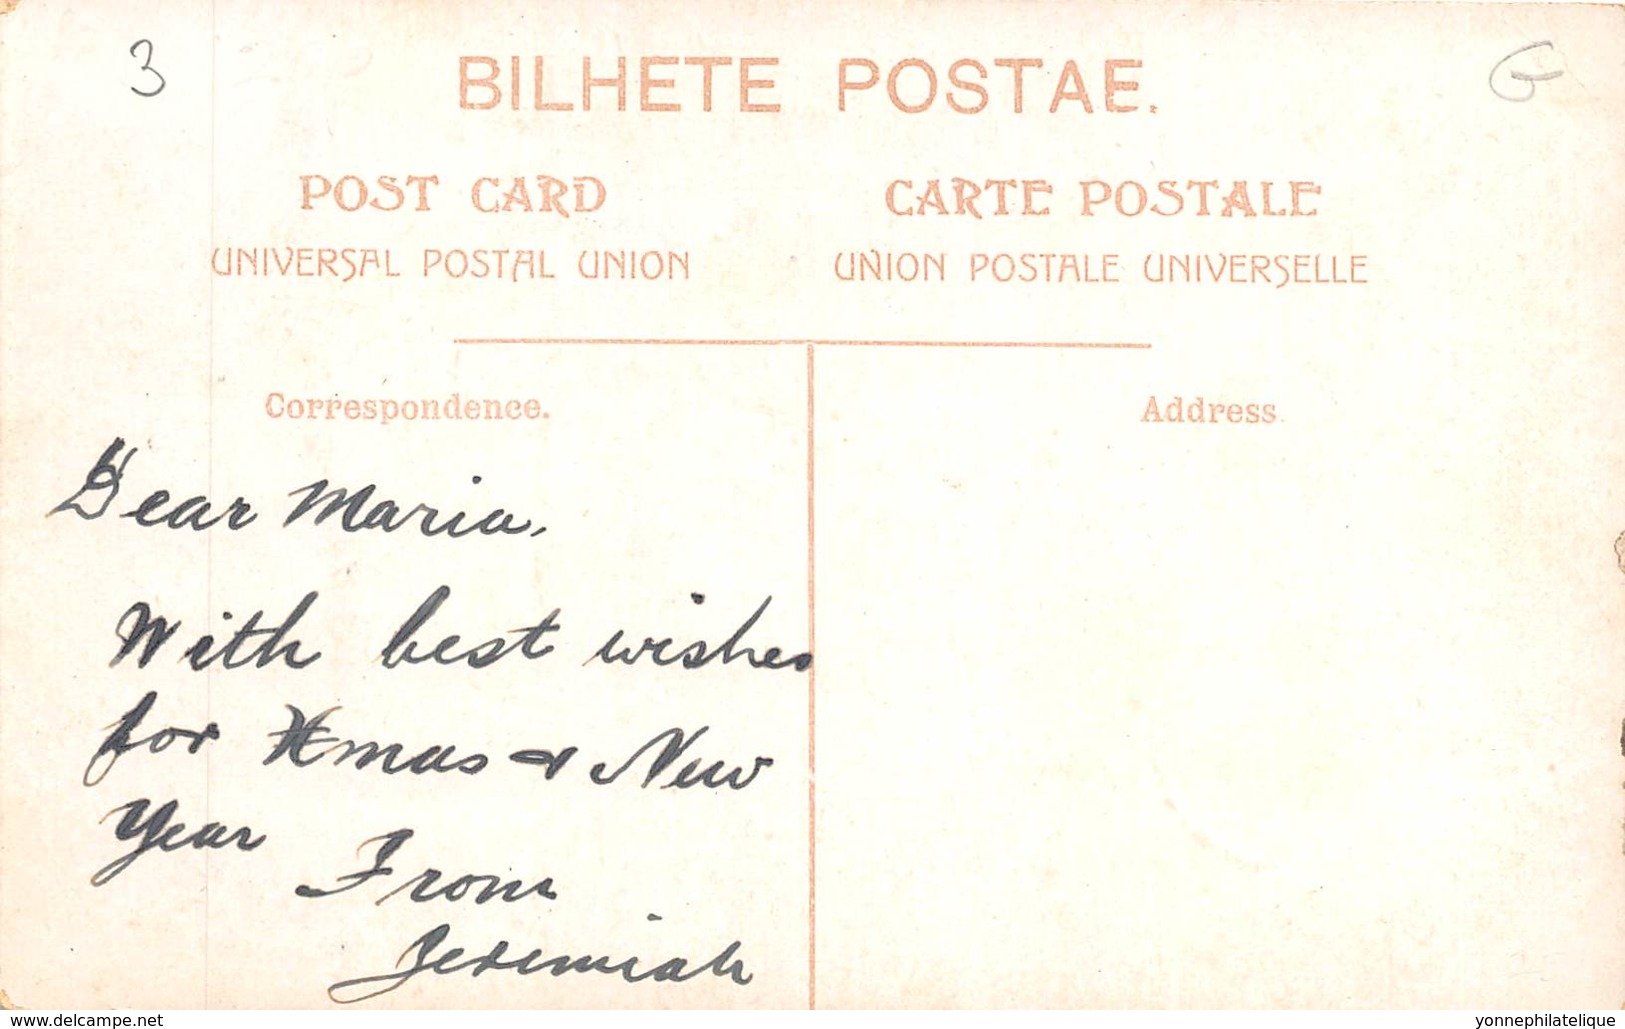 3
BILHETE POSTAE.
POST CARD
CARTE POSTALE
UNIVERSAL POSTAL UNION
UNION POSTALE UNIVERSELLE
Correspondence.
Address
Dear Maria,
With best wishes
for Xmas & New
Year
From
Jeremiah
www.delcampe.net
yonnephilatelique